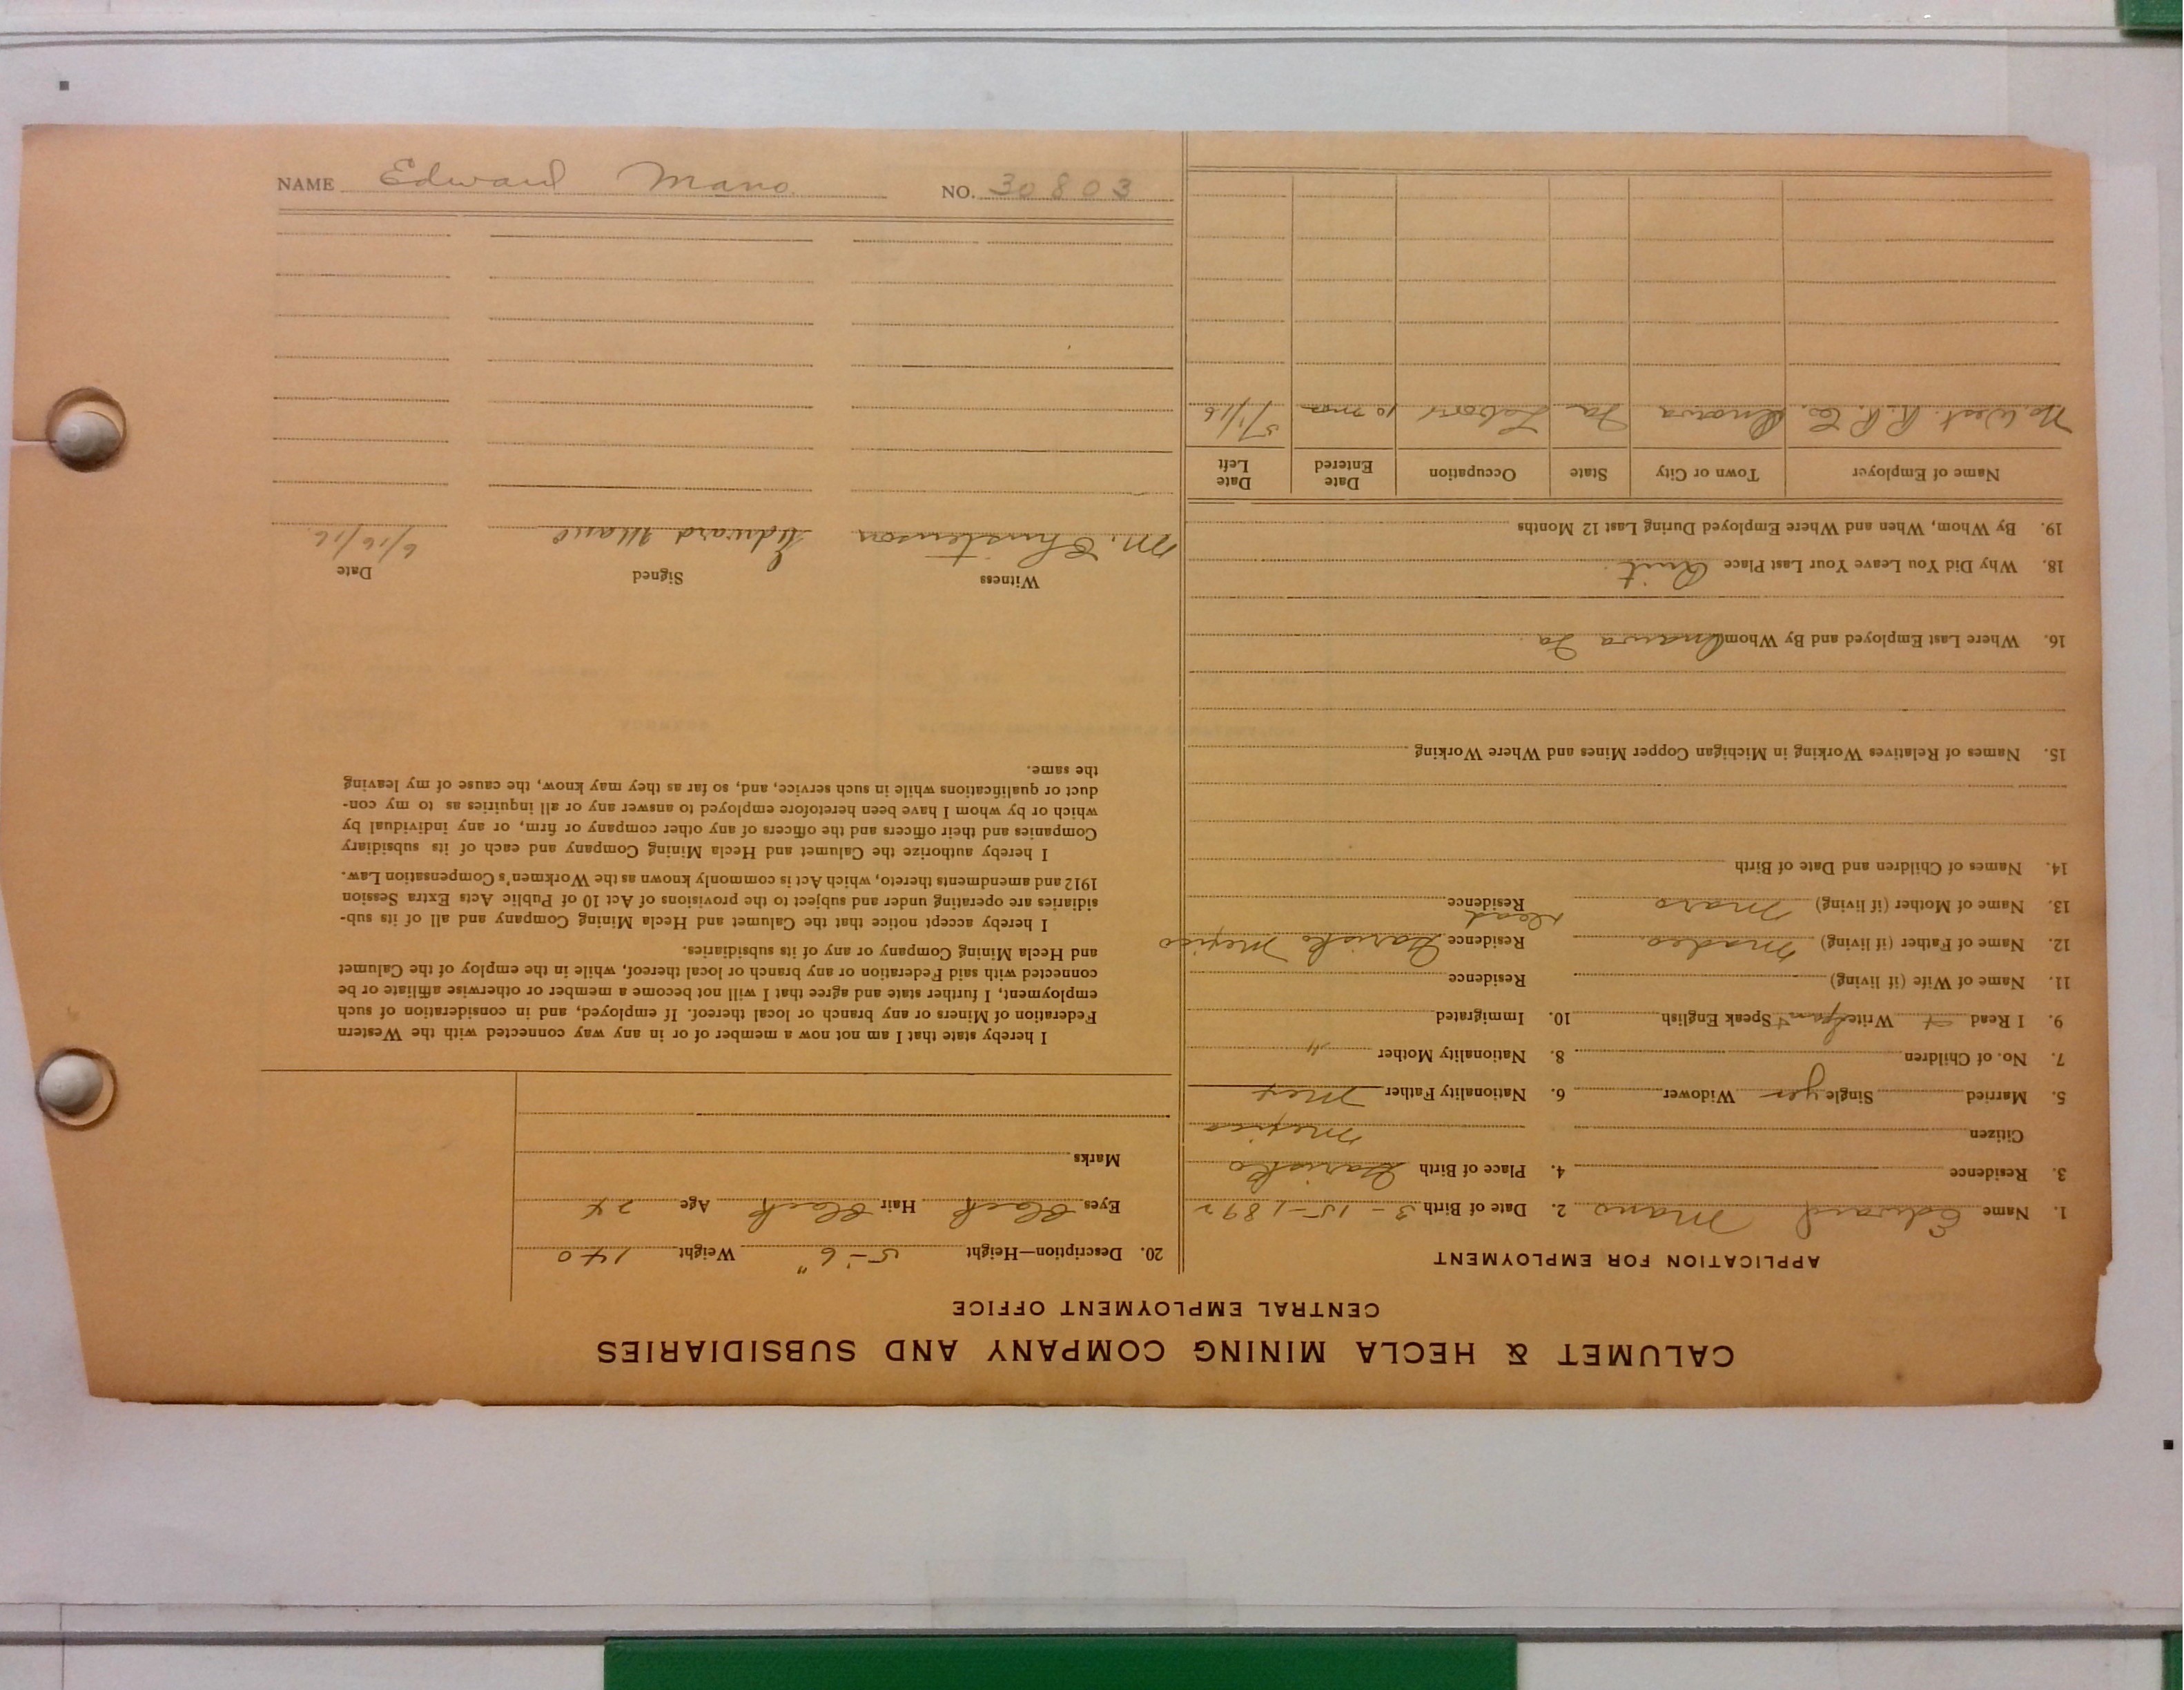 CALUMET & HECLA MINING COMPANY AND SUBSIDIARIES
CENTRAL EMPLOYMENT OFFICE
APPLICATION FOR EMPLOYMENT
1. Name Edward Mano 2. Date of Birth 3-15-1892
3. Residence 4. Place of Birth
Citizen Mexico
5. Married Single yes Widower 6. Nationality Father Mex
7. No. of Children 8. Nationality Mother "
9. I Read Write Speak English 10. Immigrated
11. Name of Wife (if living) Residence
12. Name of Father (if living) Madeo Residence Mexico
13. Name of Mother (if living) Residence dead
14. Names of Children and Date of Birth
15. Names of Relatives Working in Michigan Copper Mines and Where Working
16. Where Last Employed and By Whom Onawa Ia
18. Why Did You Leave Your Last Place Quit
19. By Whom, When and Where Employed During Last 12 Months
Name of Employer Town or City State Occupation Date Entered Date Left
No. West. R. R. Co. Onawa Ia Labory 10 mos 5/1/16
20. Description—Height 5-6" Weight 140
Eyes Black Hair Black Age 24
Marks
I hereby state that I am not now a member of or in any way connected with the Western
Federation of Miners or any branch or local thereof. If employed, and in consideration of such
employment, I further state and agree that I will not become a member or otherwise affiliate or be
connected with said Federation or any branch or local thereof, while in the employ of the Calumet
and Hecla Mining Company or any of its subsidiaries.
I hereby accept notice that the Calumet and Hecla Mining Company and all of its sub-
sidiaries are operating under and subject to the provisions of Act 10 of Public Acts Extra Session
1912 and amendments thereto, which Act is commonly known as the Workmen's Compensation Law.
I hereby authorize the Calumet and Hecla Mining Company and each of its subsidiary
Companies and their officers and the officers of any other company or firm, or any individual by
which or by whom I have been heretofore employed to answer any or all inquiries as to my con-
duct or qualifications while in such service, and, so far as they may know, the cause of my leaving
the same.
Witness Signed Date
M. Christenson Edward Mano 6/16/16
NAME Edward Mano NO. 30803